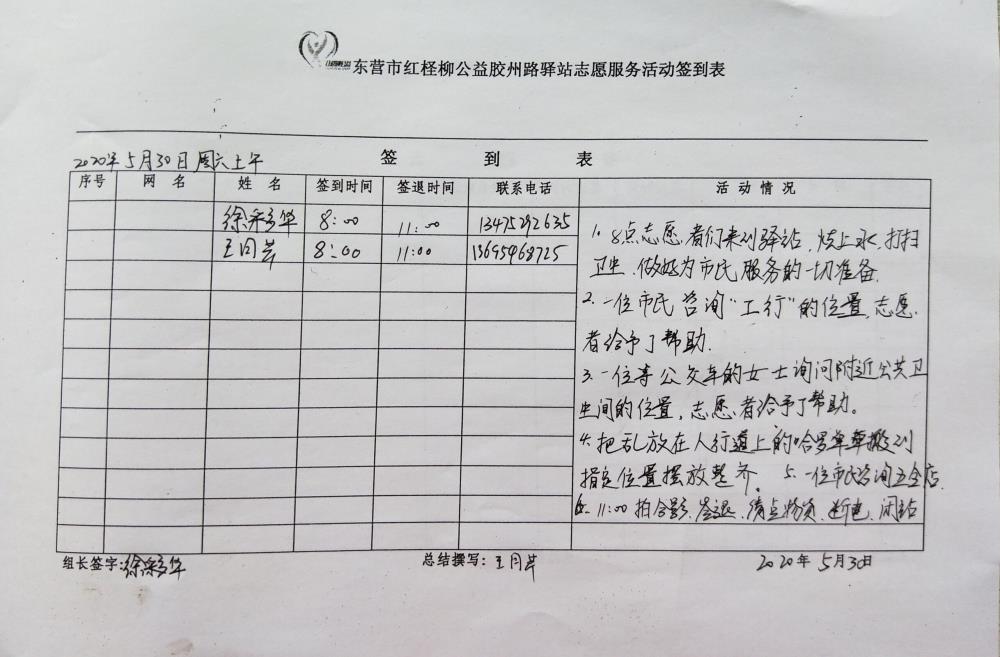 东营市红柽柳公益胶州路驿站志愿服务活动签到表
签 到 表
2020年5月30日周六上午
序号 网 名 姓 名 签到时间 签退时间 联系电话 活 动 情 况
徐采多华 8:00 11:00 13475292635
王月芹 8:00 11:00 13695468725
1. 8点志愿者们来到驿站,烧上水,打扫
卫生、做好为市民服务的一切准备.
2. 一位市民咨询“工行”的位置,志愿
者给予了帮助.
3. 一位等公交车的女士询问附近公共卫
生间的位置,志愿者给予了帮助。
4. 把乱放在人行道上的哈罗单车搬到
指定位置摆放整齐。 5. 一位市民咨询五金店.
6. 11:00 拍合影、签退、清点物资、断电、闭站
组长签字:徐采多华 总结撰写:王月芹 2020年5月30日